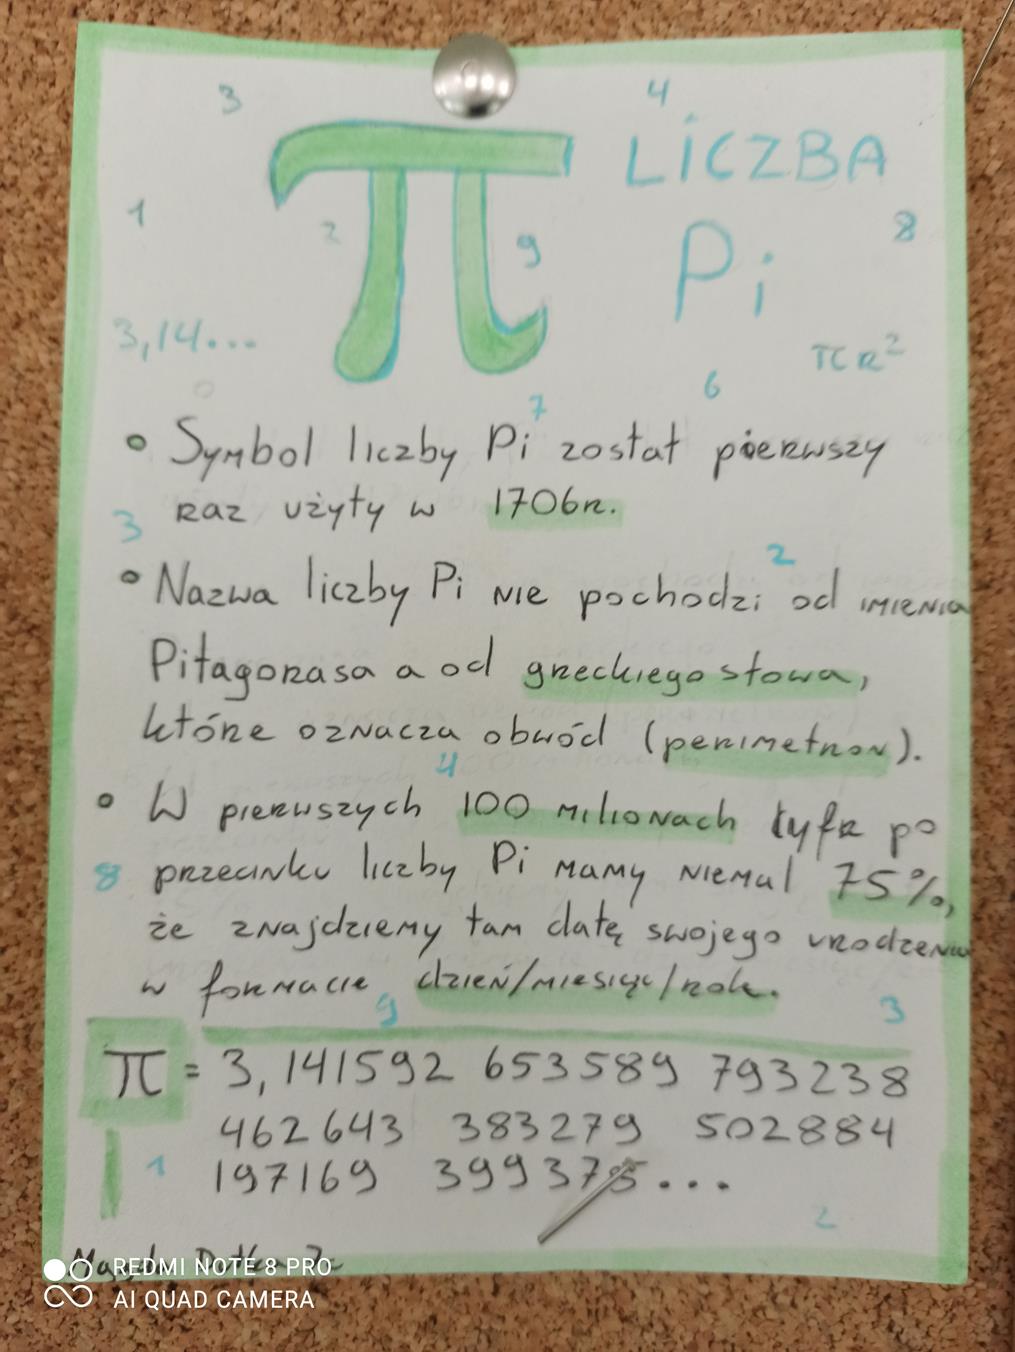 3
4
LICZBA
1
2
9
8
Pi
3,14...
πR²
6
7
• Symbol liczby Pi został pierwszy
raz użyty w 1706r.
3
2
• Nazwa liczby Pi nie pochodzi od imienia
Pitagorasa a od greckiego słowa,
które oznacza obwód (perimetron).
4
• W pierwszych 100 milionach cyfr po
8
przecinku liczby Pi mamy niemal 75%,
że znajdziemy tam datę swojego urodzenia
w formacie dzień/miesiąc/rok.
9
3
π = 3,141592 653589 793238
462643 383279 502884
1
197169 399375...
2
REDMI NOTE 8 PRO
AI QUAD CAMERA